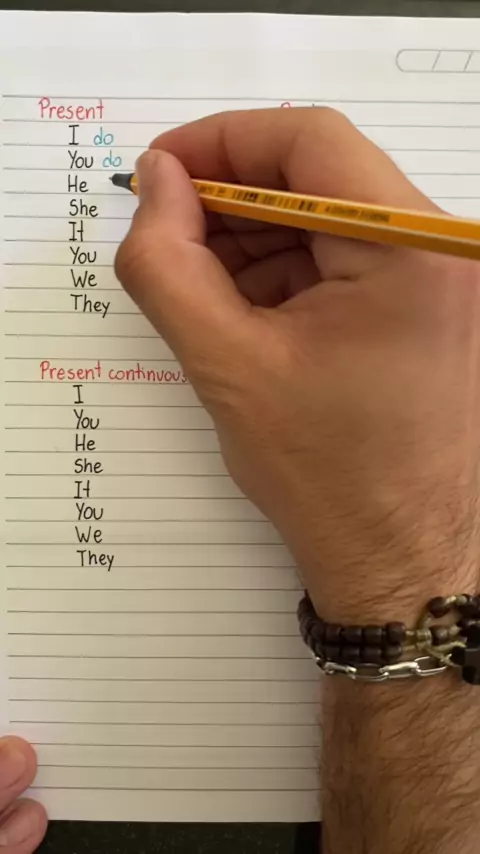 Present
I do
You do
He
She
It
You
We
They
Present continuous
I
You
He
She
It
You
We
They